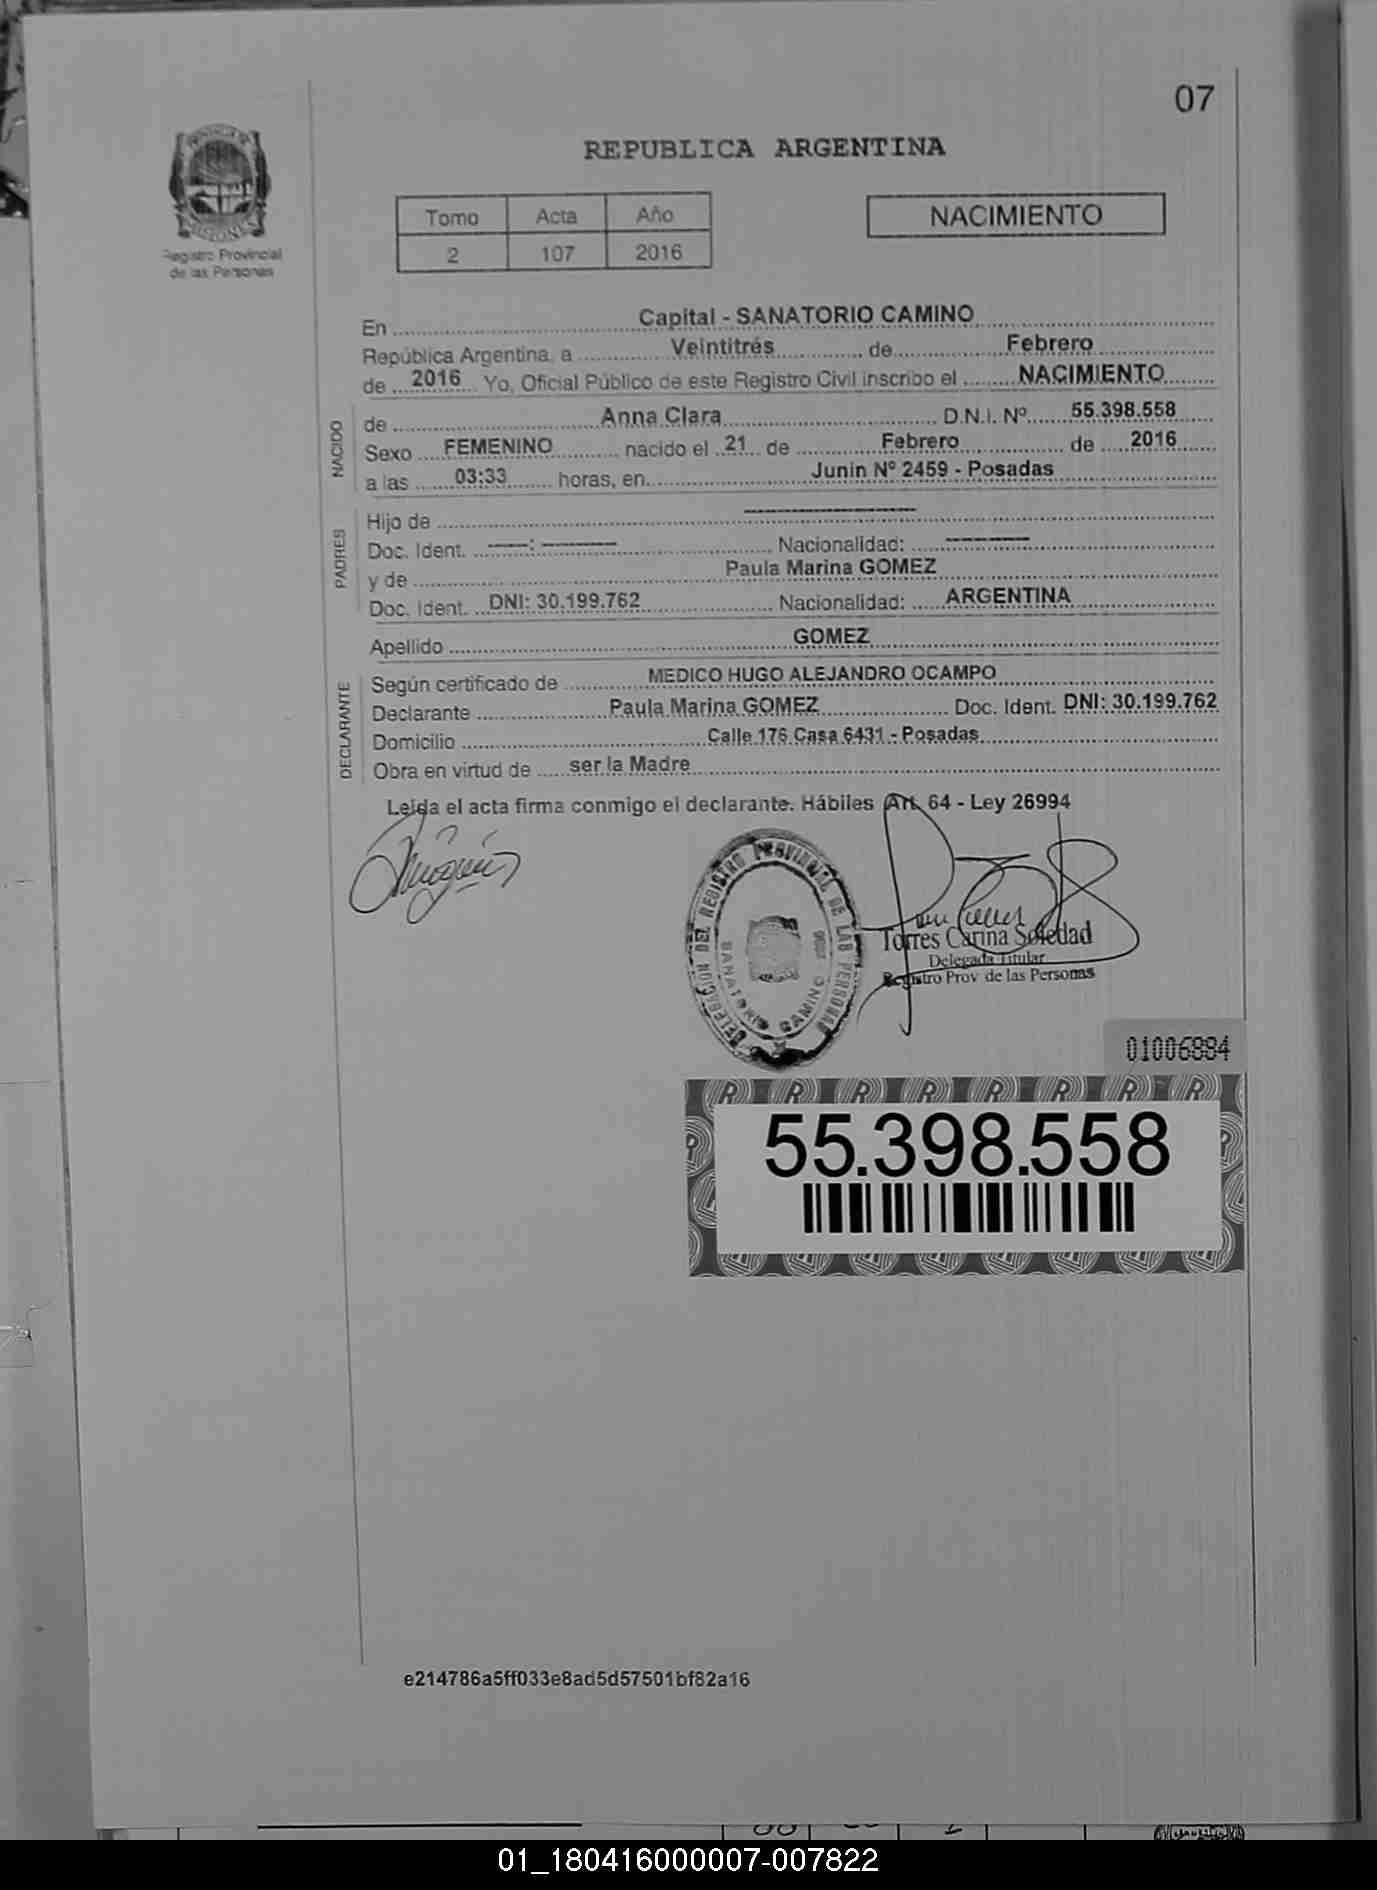 07
REPUBLICA ARGENTINA
Registro Provincial
de las Personas
Tomo Acta Año
2 107 2016
NACIMIENTO
En Capital - SANATORIO CAMINO
República Argentina, a Veintitrés de Febrero
de 2016 Yo, Oficial Público de este Registro Civil inscribo el NACIMIENTO
NACIDO
de Anna Clara D.N.I. Nº 55.398.558
Sexo FEMENINO nacido el 21 de Febrero de 2016
a las 03:33 horas, en Junin Nº 2459 - Posadas
PADRES
Hijo de --------------------
Doc. Ident. -----: --------- Nacionalidad: ----------
y de Paula Marina GOMEZ
Doc. Ident. DNI: 30.199.762 Nacionalidad: ARGENTINA
Apellido GOMEZ
DECLARANTE
Según certificado de MEDICO HUGO ALEJANDRO OCAMPO
Declarante Paula Marina GOMEZ Doc. Ident. DNI: 30.199.762
Domicilio Calle 176 Casa 6431 - Posadas
Obra en virtud de ser la Madre
Leída el acta firma conmigo el declarante. Hábiles Art. 64 - Ley 26994
DELEGACION DEL REGISTRO PROVINCIAL DE LAS PERSONAS
SANATORIO CAMINO
Torres Carina Soledad
Delegada Titular
Registro Prov de las Personas
01006884
55.398.558
e214786a5ff033e8ad5d57501bf82a16
01_180416000007-007822